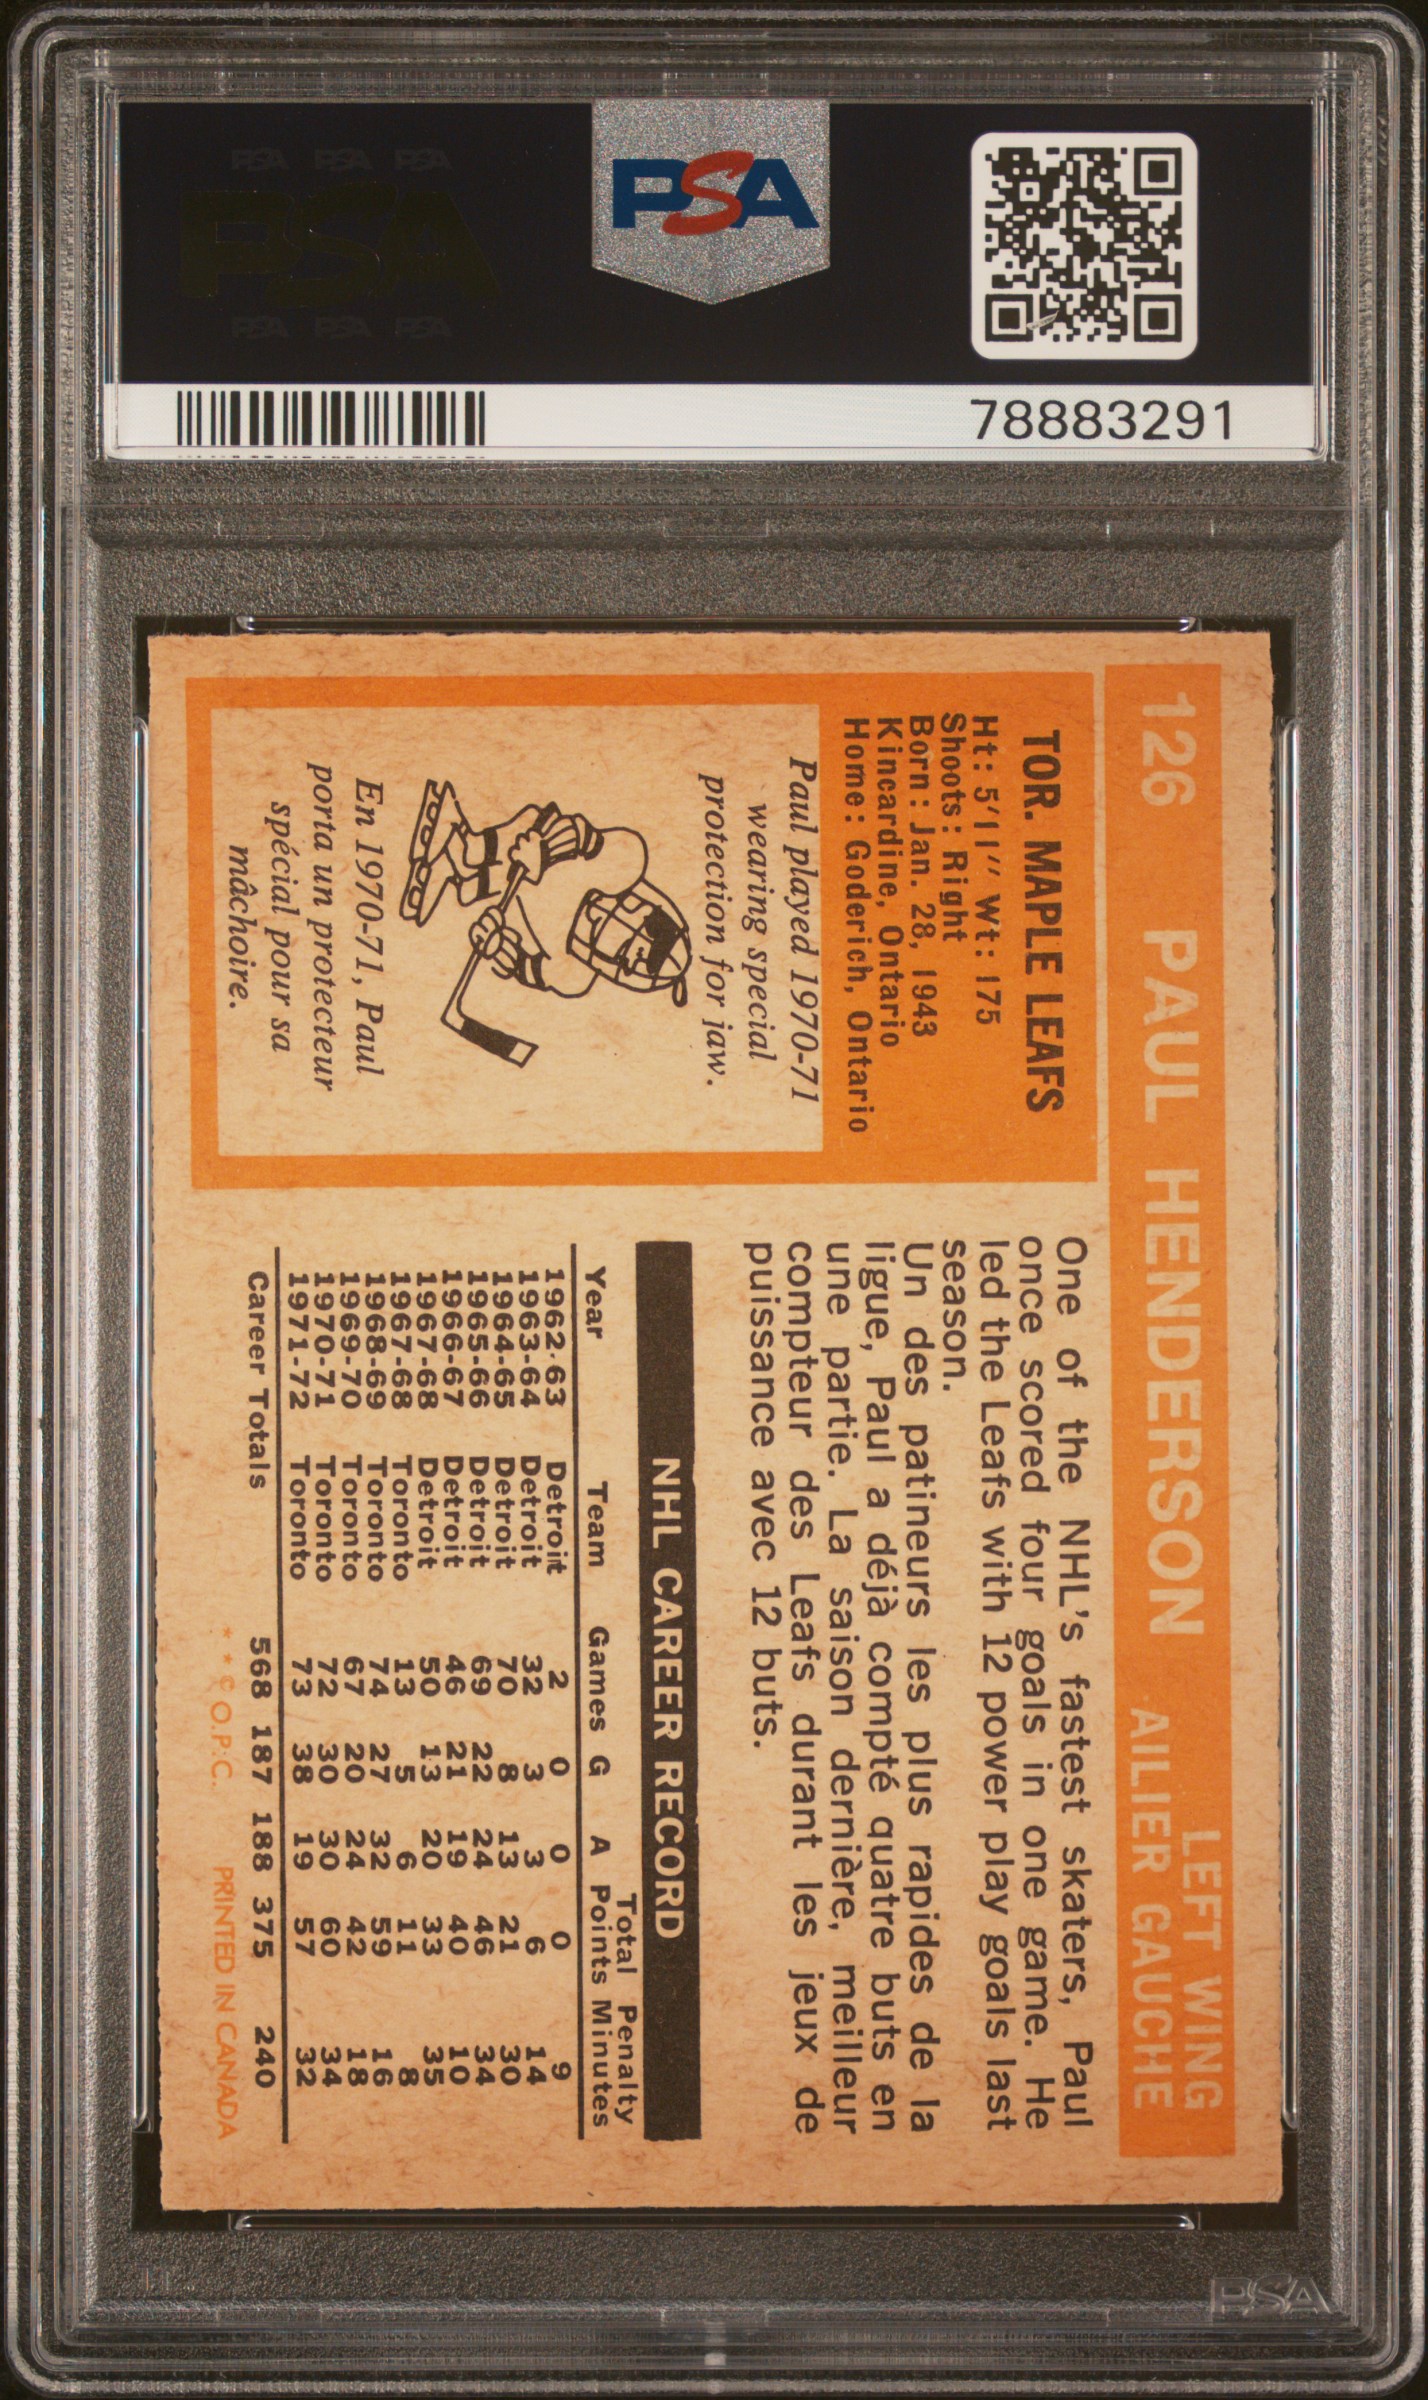 PSA PSA PSA
PSA
PSA PSA PSA
PSA
78883291
126 PAUL HENDERSON LEFT WING
AILIER GAUCHE
TOR. MAPLE LEAFS
Ht: 5'11" Wt: 175
Shoots: Right
Born: Jan. 28, 1943
Kincardine, Ontario
Home: Goderich, Ontario
Paul played 1970-71
wearing special
protection for jaw.
En 1970-71, Paul
porta un protecteur
spécial pour sa
mâchoire.
One of the NHL's fastest skaters, Paul
once scored four goals in one game. He
led the Leafs with 12 power play goals last
season.
Un des patineurs les plus rapides de la
ligue, Paul a déjà compté quatre buts en
une partie. La saison dernière, meilleur
compteur des Leafs durant les jeux de
puissance avec 12 buts.
NHL CAREER RECORD
Total Penalty
Year Team Games G A Points Minutes
1962-63 Detroit 2 0 0 0 9
1963-64 Detroit 32 3 3 6 14
1964-65 Detroit 70 8 13 21 30
1965-66 Detroit 69 22 24 46 34
1966-67 Detroit 46 21 19 40 10
1967-68 Detroit 50 13 20 33 35
1967-68 Toronto 13 5 6 11 8
1968-69 Toronto 74 27 32 59 16
1969-70 Toronto 67 20 24 42 18
1970-71 Toronto 72 30 30 60 34
1971-72 Toronto 73 38 19 57 32
Career Totals 568 187 188 375 240
* * © O.P.C. PRINTED IN CANADA
PSA